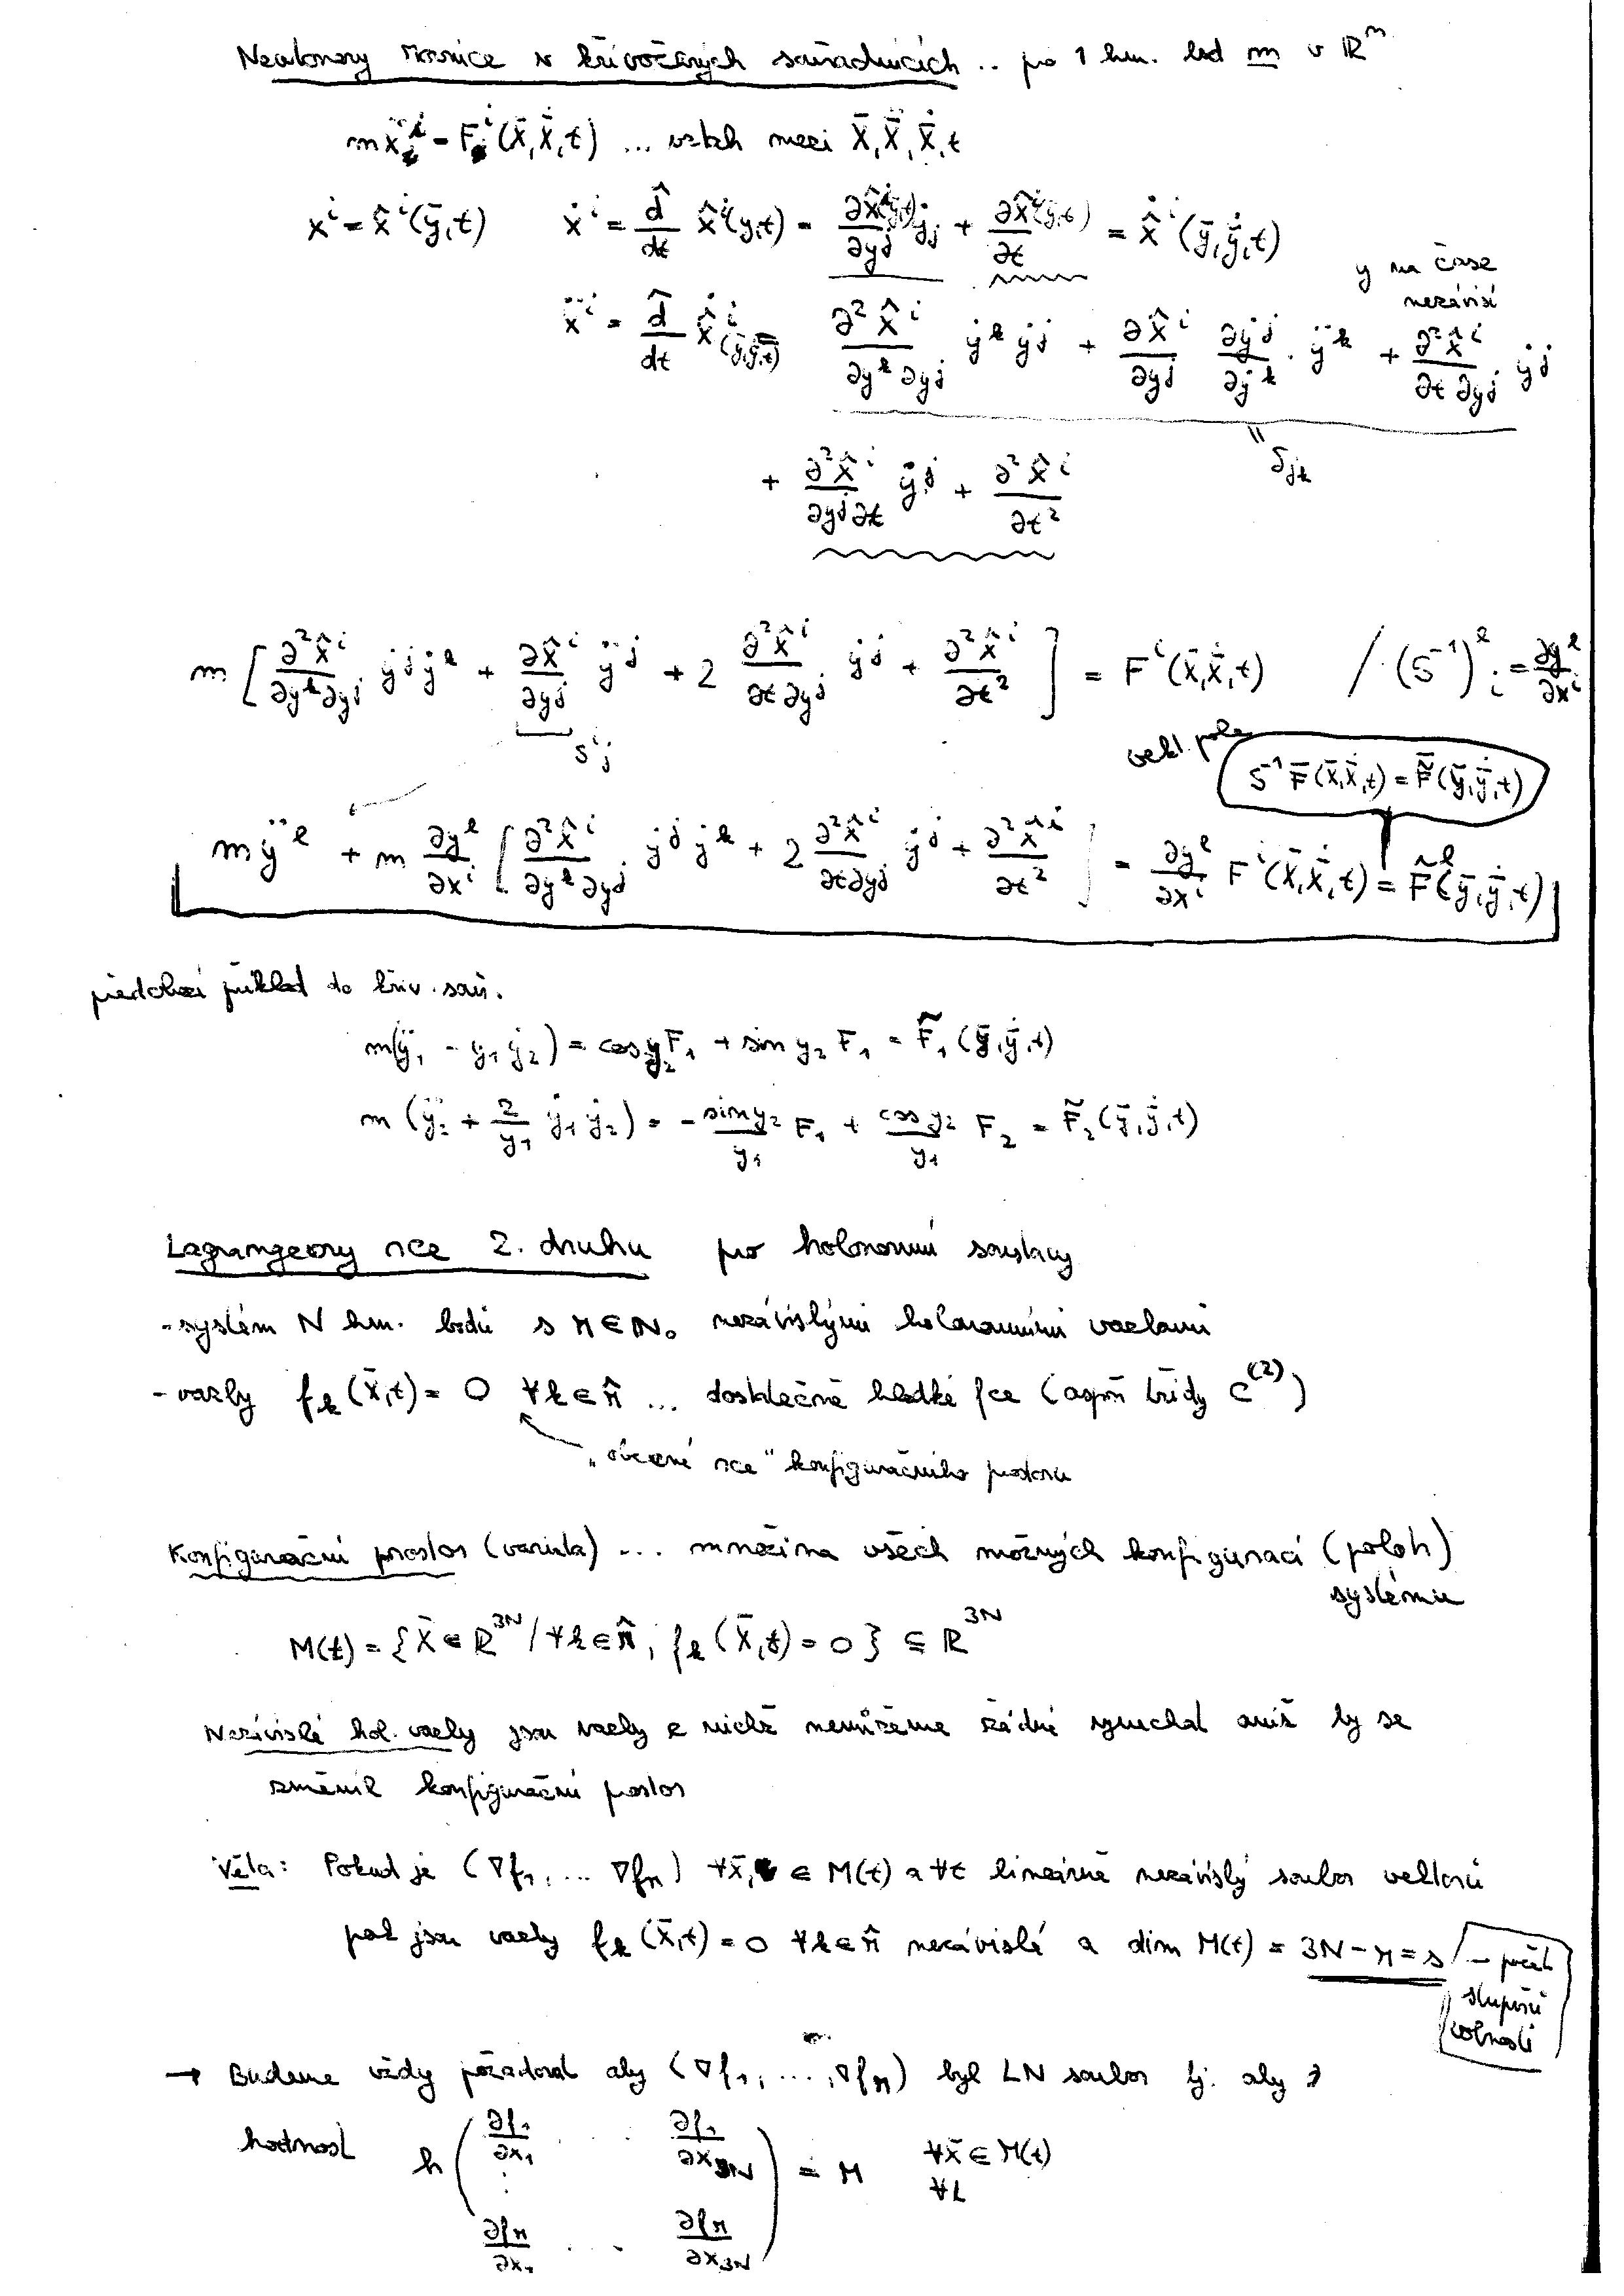 Newtonovy rovnice v křivočarých souřadnicích .. pro 1 hm. bod m v ℝⁿ
mẍⁱ = Fⁱ(x̄, ẋ̄, t) ... vztah mezi x̄, ẍ̄, ẋ̄, t
xⁱ = x̂ⁱ(ȳ,t) ẋⁱ = d̂/dt x̂ⁱ(y,t) = ∂x̂ⁱ(y,t)/∂yʲ ẏʲ + ∂x̂ⁱ(y,t)/∂t = ẋ̂ⁱ(ȳ, ẏ̄, t)
y na čase nezávisí
ẍⁱ = d̂/dt ẋ̂ⁱ(ȳ,ẏ̄,t) = ∂²x̂ⁱ/∂yᵏ∂yʲ ẏᵏ ẏʲ + ∂x̂ⁱ/∂yʲ ∂ẏʲ/∂ẏᵏ · ÿᵏ + ∂²x̂ⁱ/∂t∂yʲ ẏʲ
= δⱼₖ
+ ∂²x̂ⁱ/∂yʲ∂t ẏʲ + ∂²x̂ⁱ/∂t²
m [ ∂²x̂ⁱ/∂yᵏ∂yʲ ẏʲẏᵏ + ∂x̂ⁱ/∂yʲ ÿʲ + 2 ∂²x̂ⁱ/∂t∂yʲ ẏʲ + ∂²x̂ⁱ/∂t² ] = Fⁱ(x̄,ẋ̄,t) / · (S⁻¹)ˡᵢ = ∂yˡ/∂xⁱ
Sⁱⱼ
vekt. pole S⁻¹ F̄(x̄,ẋ̄,t) = F̃̄(ȳ,ẏ̄,t)
mÿˡ + m ∂yˡ/∂xⁱ [ ∂²x̂ⁱ/∂yᵏ∂yʲ ẏʲẏᵏ + 2 ∂²x̂ⁱ/∂t∂yʲ ẏʲ + ∂²x̂ⁱ/∂t² ] = ∂yˡ/∂xⁱ Fⁱ(x̄,ẋ̄,t) = F̃ˡ(ȳ,ẏ̄,t)
předchozí příklad do křiv. souř.
m(ÿ₁ - y₁ẏ₂) = cos y₂ F₁ + sin y₂ F₁ = F̃₁(ȳ,ẏ̄,t)
m(ÿ₂ + 2/y₁ ẏ₁ẏ₂) = - sin y₂/y₁ F₁ + cos y₂/y₁ F₂ = F̃₂(ȳ,ẏ̄,t)
Lagrangeovy rce 2. druhu pro holonomní soustavy
- systém N hm. bodů s r ∈ N₀ nezávislými holonomními vazbami
- vazby fₖ(x̄,t) = 0 ∀k ∈ r̂ ... dostatečně hladké fce (aspoň třídy C⁽²⁾)
„obecné rce" konfiguračního prostoru
Konfigurační prostor (varieta) ... množina všech možných konfigurací (poloh)
systému
M(t) = {x̄ ∈ ℝ³ᴺ / ∀k ∈ r̂, fₖ(x̄,t) = 0} ⊆ ℝ³ᴺ
Nezávislé hol. vazby jsou vazby z nichž nemůžeme žádné vynechat aniž by se
změnil konfigurační prostor
Věta: Pokud je (∇f₁, ... ∇fᵣ) ∀x̄, ∈ M(t) a ∀t lineárně nezávislý soubor vektorů
pak jsou vazby fₖ(x̄,t) = 0 ∀k ∈ r̂ nezávislé a dim M(t) = 3N - r = s - počet
stupňů
volnosti
→ Budeme vždy požadovat aby (∇f₁, ..., ∇fᵣ) byl LN soubor tj. aby
hodnost h ( ∂f₁/∂x₁ ... ∂f₁/∂x₃ₙ ) = r ∀x̄ ∈ M(t)
∀t
∂fᵣ/∂x₁ ... ∂fᵣ/∂x₃ₙ